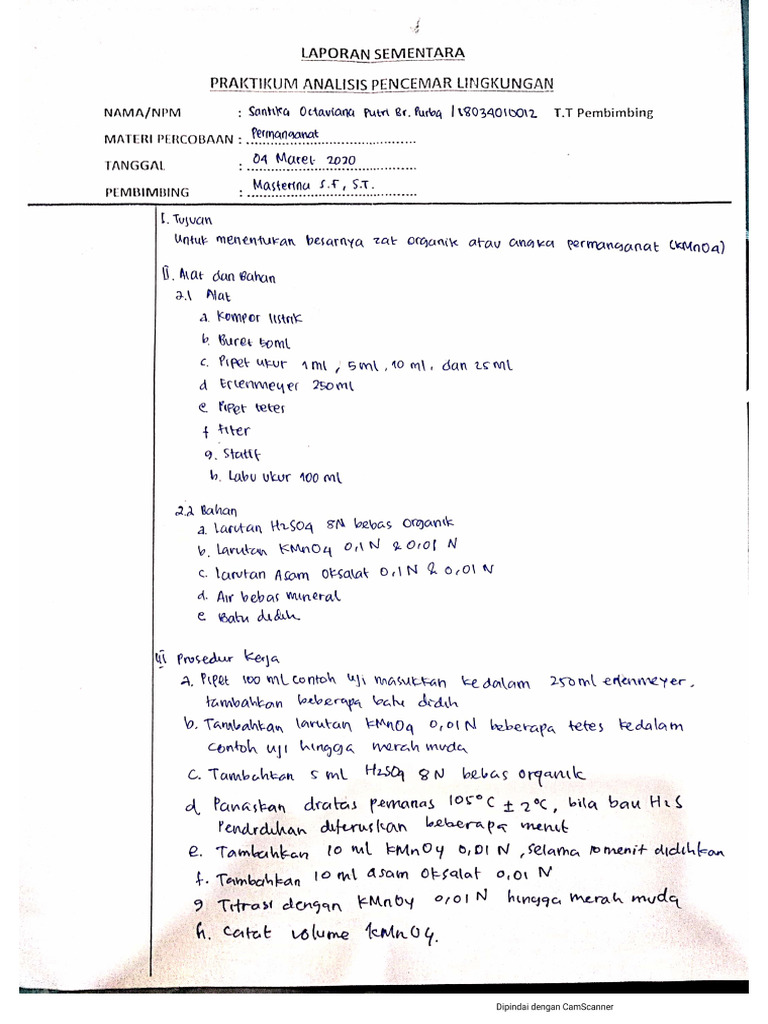 LAPORAN SEMENTARA
PRAKTIKUM ANALISIS PENCEMAR LINGKUNGAN
NAMA/NPM : Santika Octaviana Putri Br. Purba / 18034010012 T.T Pembimbing
MATERI PERCOBAAN : Permanganat
TANGGAL : 04 Maret 2020
PEMBIMBING : Masterina S.F, S.T.
I. Tujuan
Untuk menentukan besarnya zat organik atau angka permanganat (KMnO4)
II. Alat dan Bahan
2.1 Alat
a. Kompor listrik
b. Buret 50ml
c. Pipet ukur 1 ml, 5 ml, 10 ml, dan 25 ml
d Erlenmeyer 250 ml
e Pipet tetes
f titer
g. Statif
h. Labu ukur 100 ml
2.2 Bahan
a. Larutan H2SO4 8N bebas organik
b. Larutan KMnO4 0,1 N & 0,01 N
c. Larutan Asam Oksalat 0,1 N & 0,01 N
d. Air bebas mineral
e Batu didih
III Prosedur Kerja
a. Pipet 100 ml contoh uji masukkan kedalam 250 ml erlenmeyer,
tambahkan beberapa batu didih
b. Tambahkan larutan KMnO4 0,01 N beberapa tetes kedalam
contoh uji hingga merah muda
c. Tambahkan 5 ml H2SO4 8N bebas organik
d Panaskan diatas pemanas 105°C ± 2°C, bila bau H2S
Pendidihan diteruskan beberapa menit
e. Tambahkan 10 ml KMnO4 0,01 N, selama 10 menit didihkan
f. Tambahkan 10 ml asam oksalat 0,01 N
g Titrasi dengan KMnO4 0,01 N hingga merah muda
h. Catat volume KMnO4.
Dipindai dengan CamScanner